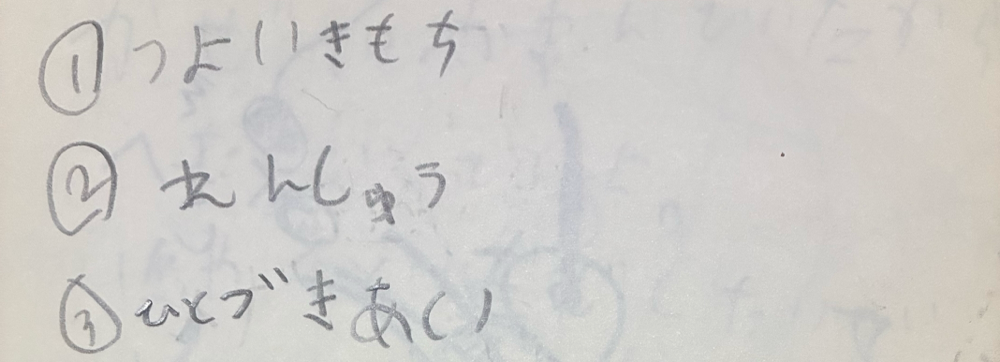 ① つよいきもち
② れんしゅう
③ ひとづきあい